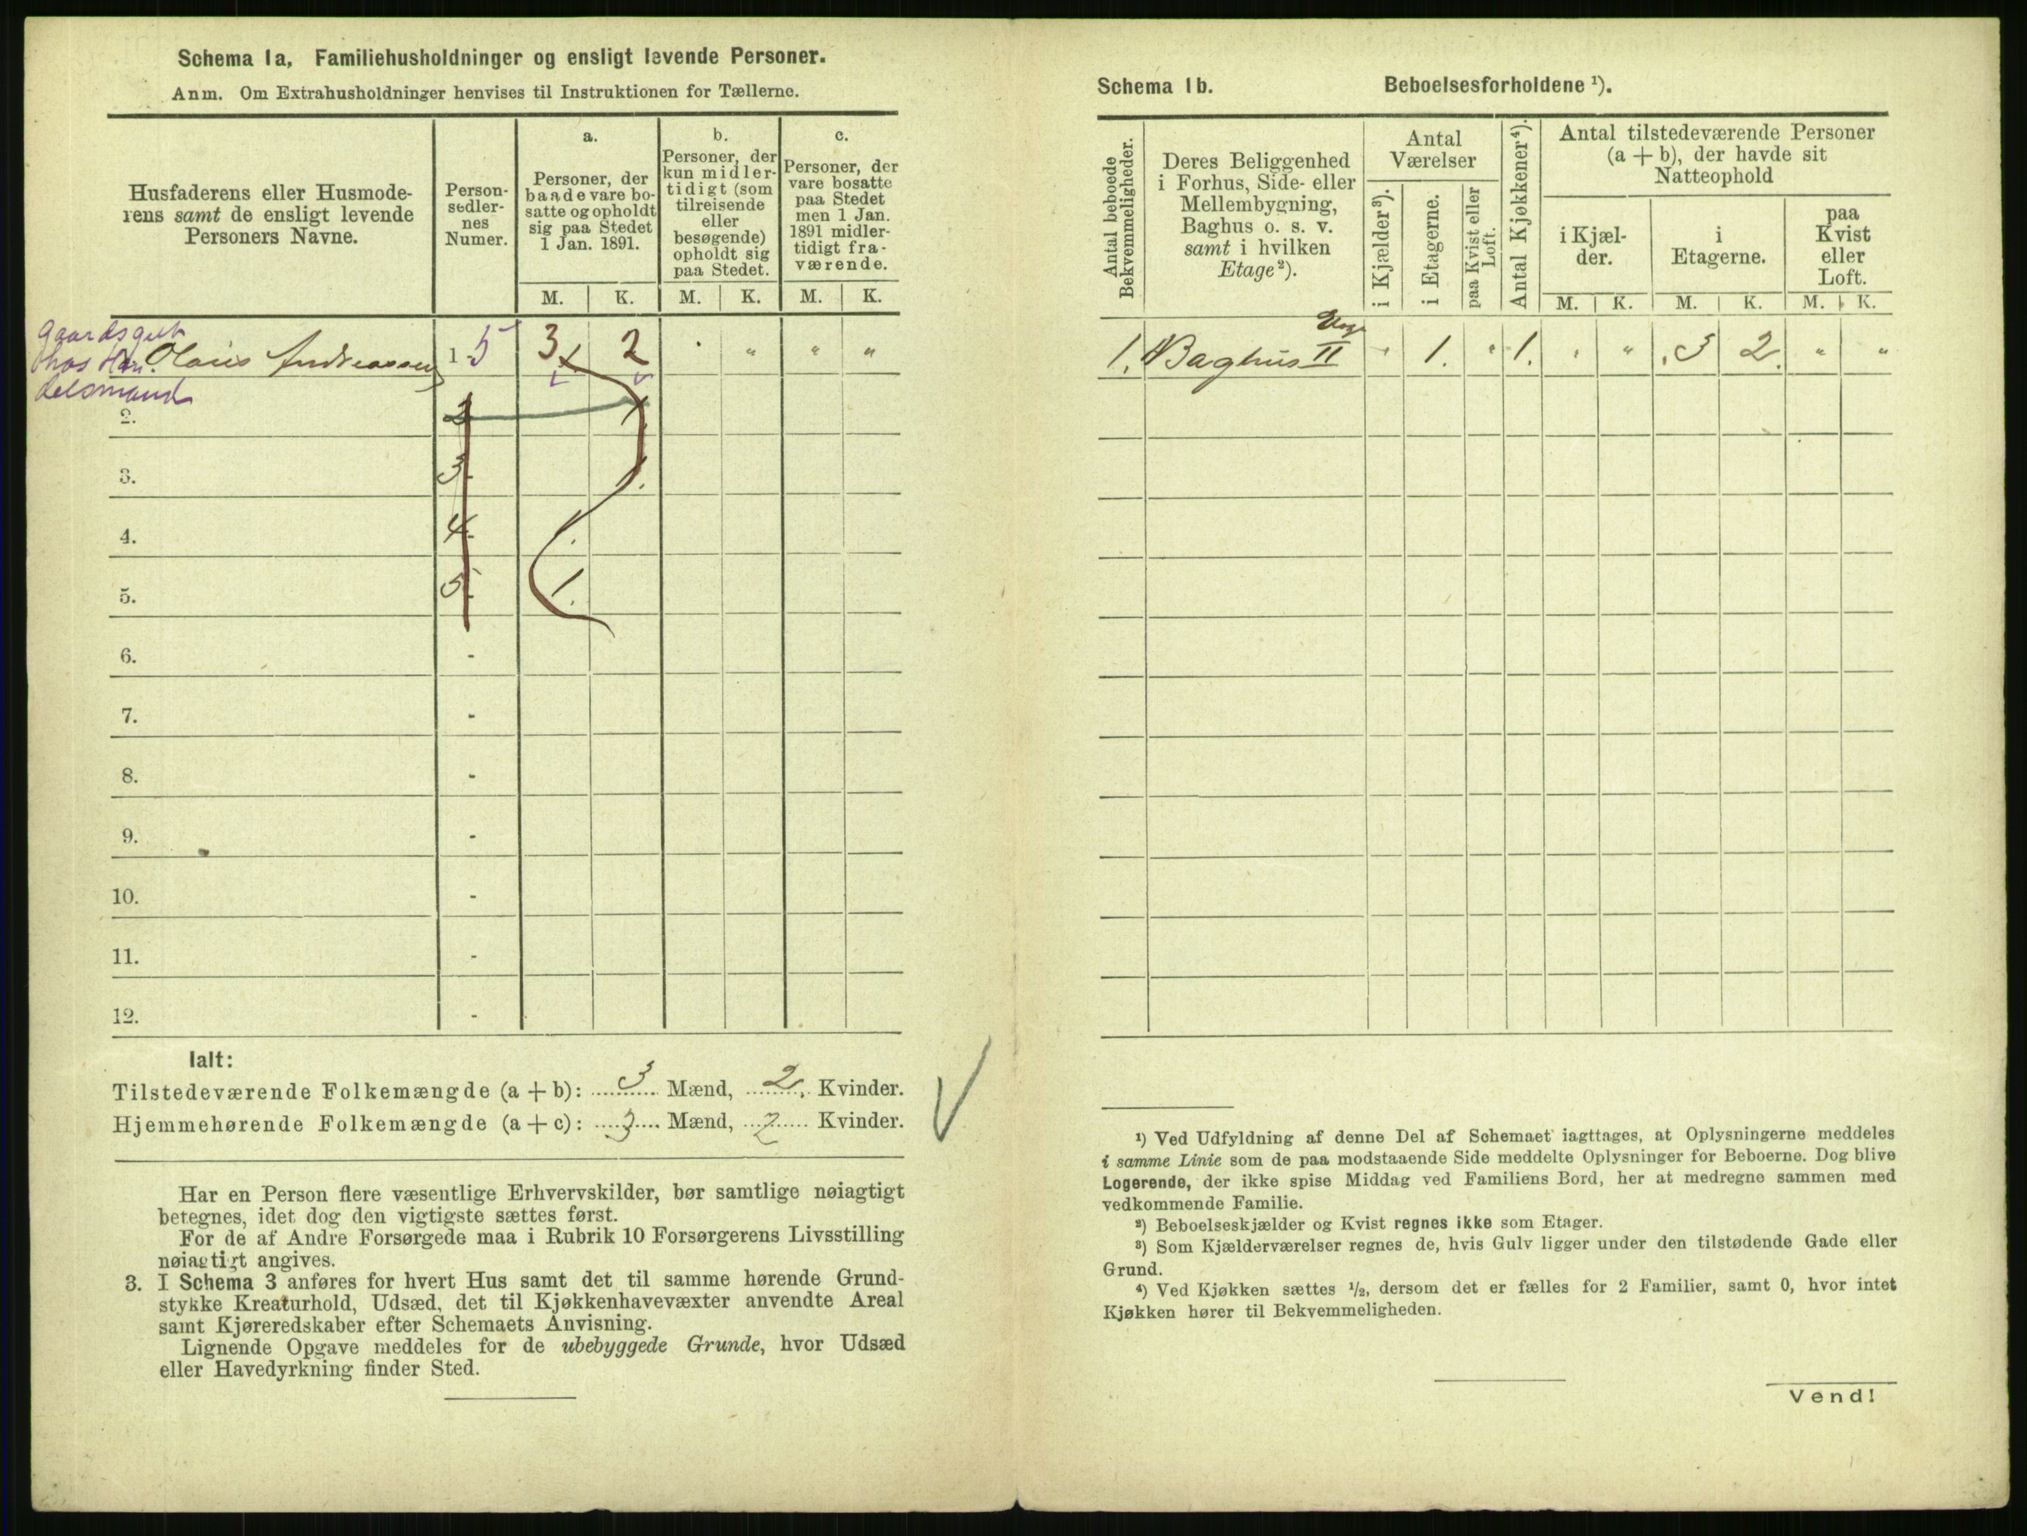 Schema 1a, Familiehusholdninger og ensligt levende Personer.
Anm. Om Extrahusholdninger henvises til Instruktionen for Tællerne.
Husfaderens eller Husmoderens samt de ensligt levende Personers Navne.
Personsedlernes Numer.
a.
Personer, der baade vare bosatte og opholdt sig paa Stedet 1 Jan. 1891.
b.
Personer, der kun midlertidigt (som tilreisende eller besøgende) opholdt sig paa Stedet.
c.
Personer, der vare bosatte paa Stedet men 1 Jan. 1891 midlertidigt fraværende.
M. K. M. K. M. K.
Gaardsgut
hos Han
delsmand
1. Olaus Andreassen 5 3 2 " " " "
2. 2 1
3. 3 1.
4. 4 1.
5. 5 1.
6. -
7. -
8. -
9. -
10. -
11. -
12. -
Ialt:
Tilstedeværende Folkemængde (a + b): 3 Mænd, 2 Kvinder.
Hjemmehørende Folkemængde (a + c): 3 Mænd, 2 Kvinder.
Har en Person flere væsentlige Erhvervskilder, bør samtlige nøiagtigt
betegnes, idet dog den vigtigste sættes først.
For de af Andre Forsørgede maa i Rubrik 10 Forsørgerens Livsstilling
nøiagtigt angives.
3. I Schema 3 anføres for hvert Hus samt det til samme hørende Grund-
stykke Kreaturhold, Udsæd, det til Kjøkkenhavevæxter anvendte Areal
samt Kjøreredskaber efter Schemaets Anvisning.
Lignende Opgave meddeles for de ubebyggede Grunde, hvor Udsæd
eller Havedyrkning finder Sted.
Schema 1b. Beboelsesforholdene ¹).
Antal beboede Bekvemmeligheder.
Deres Beliggenhed i Forhus, Side- eller Mellembygning, Baghus o. s. v. samt i hvilken Etage²).
Antal Værelser
i Kjælder³).
i Etagerne.
paa Kvist eller Loft.
Antal Kjøkkener⁴).
Antal tilstedeværende Personer (a + b), der havde sit Natteophold
i Kjælder.
i Etagerne.
paa Kvist eller Loft.
M. K. M. K. M. K.
1. Baghus II " 1. " 1. " " 3 2. " "
¹) Ved Udfyldning af denne Del af Schemaet iagttages, at Oplysningerne meddeles
i samme Linie som de paa modstaaende Side meddelte Oplysninger for Beboerne. Dog blive
Logerende, der ikke spise Middag ved Familiens Bord, her at medregne sammen med
vedkommende Familie.
²) Beboelseskjælder og Kvist regnes ikke som Etager.
³) Som Kjælderværelser regnes de, hvis Gulv ligger under den tilstødende Gade eller
Grund.
⁴) Ved Kjøkken sættes ½, dersom det er fælles for 2 Familier, samt 0, hvor intet
Kjøkken hører til Bekvemmeligheden.
Vend!